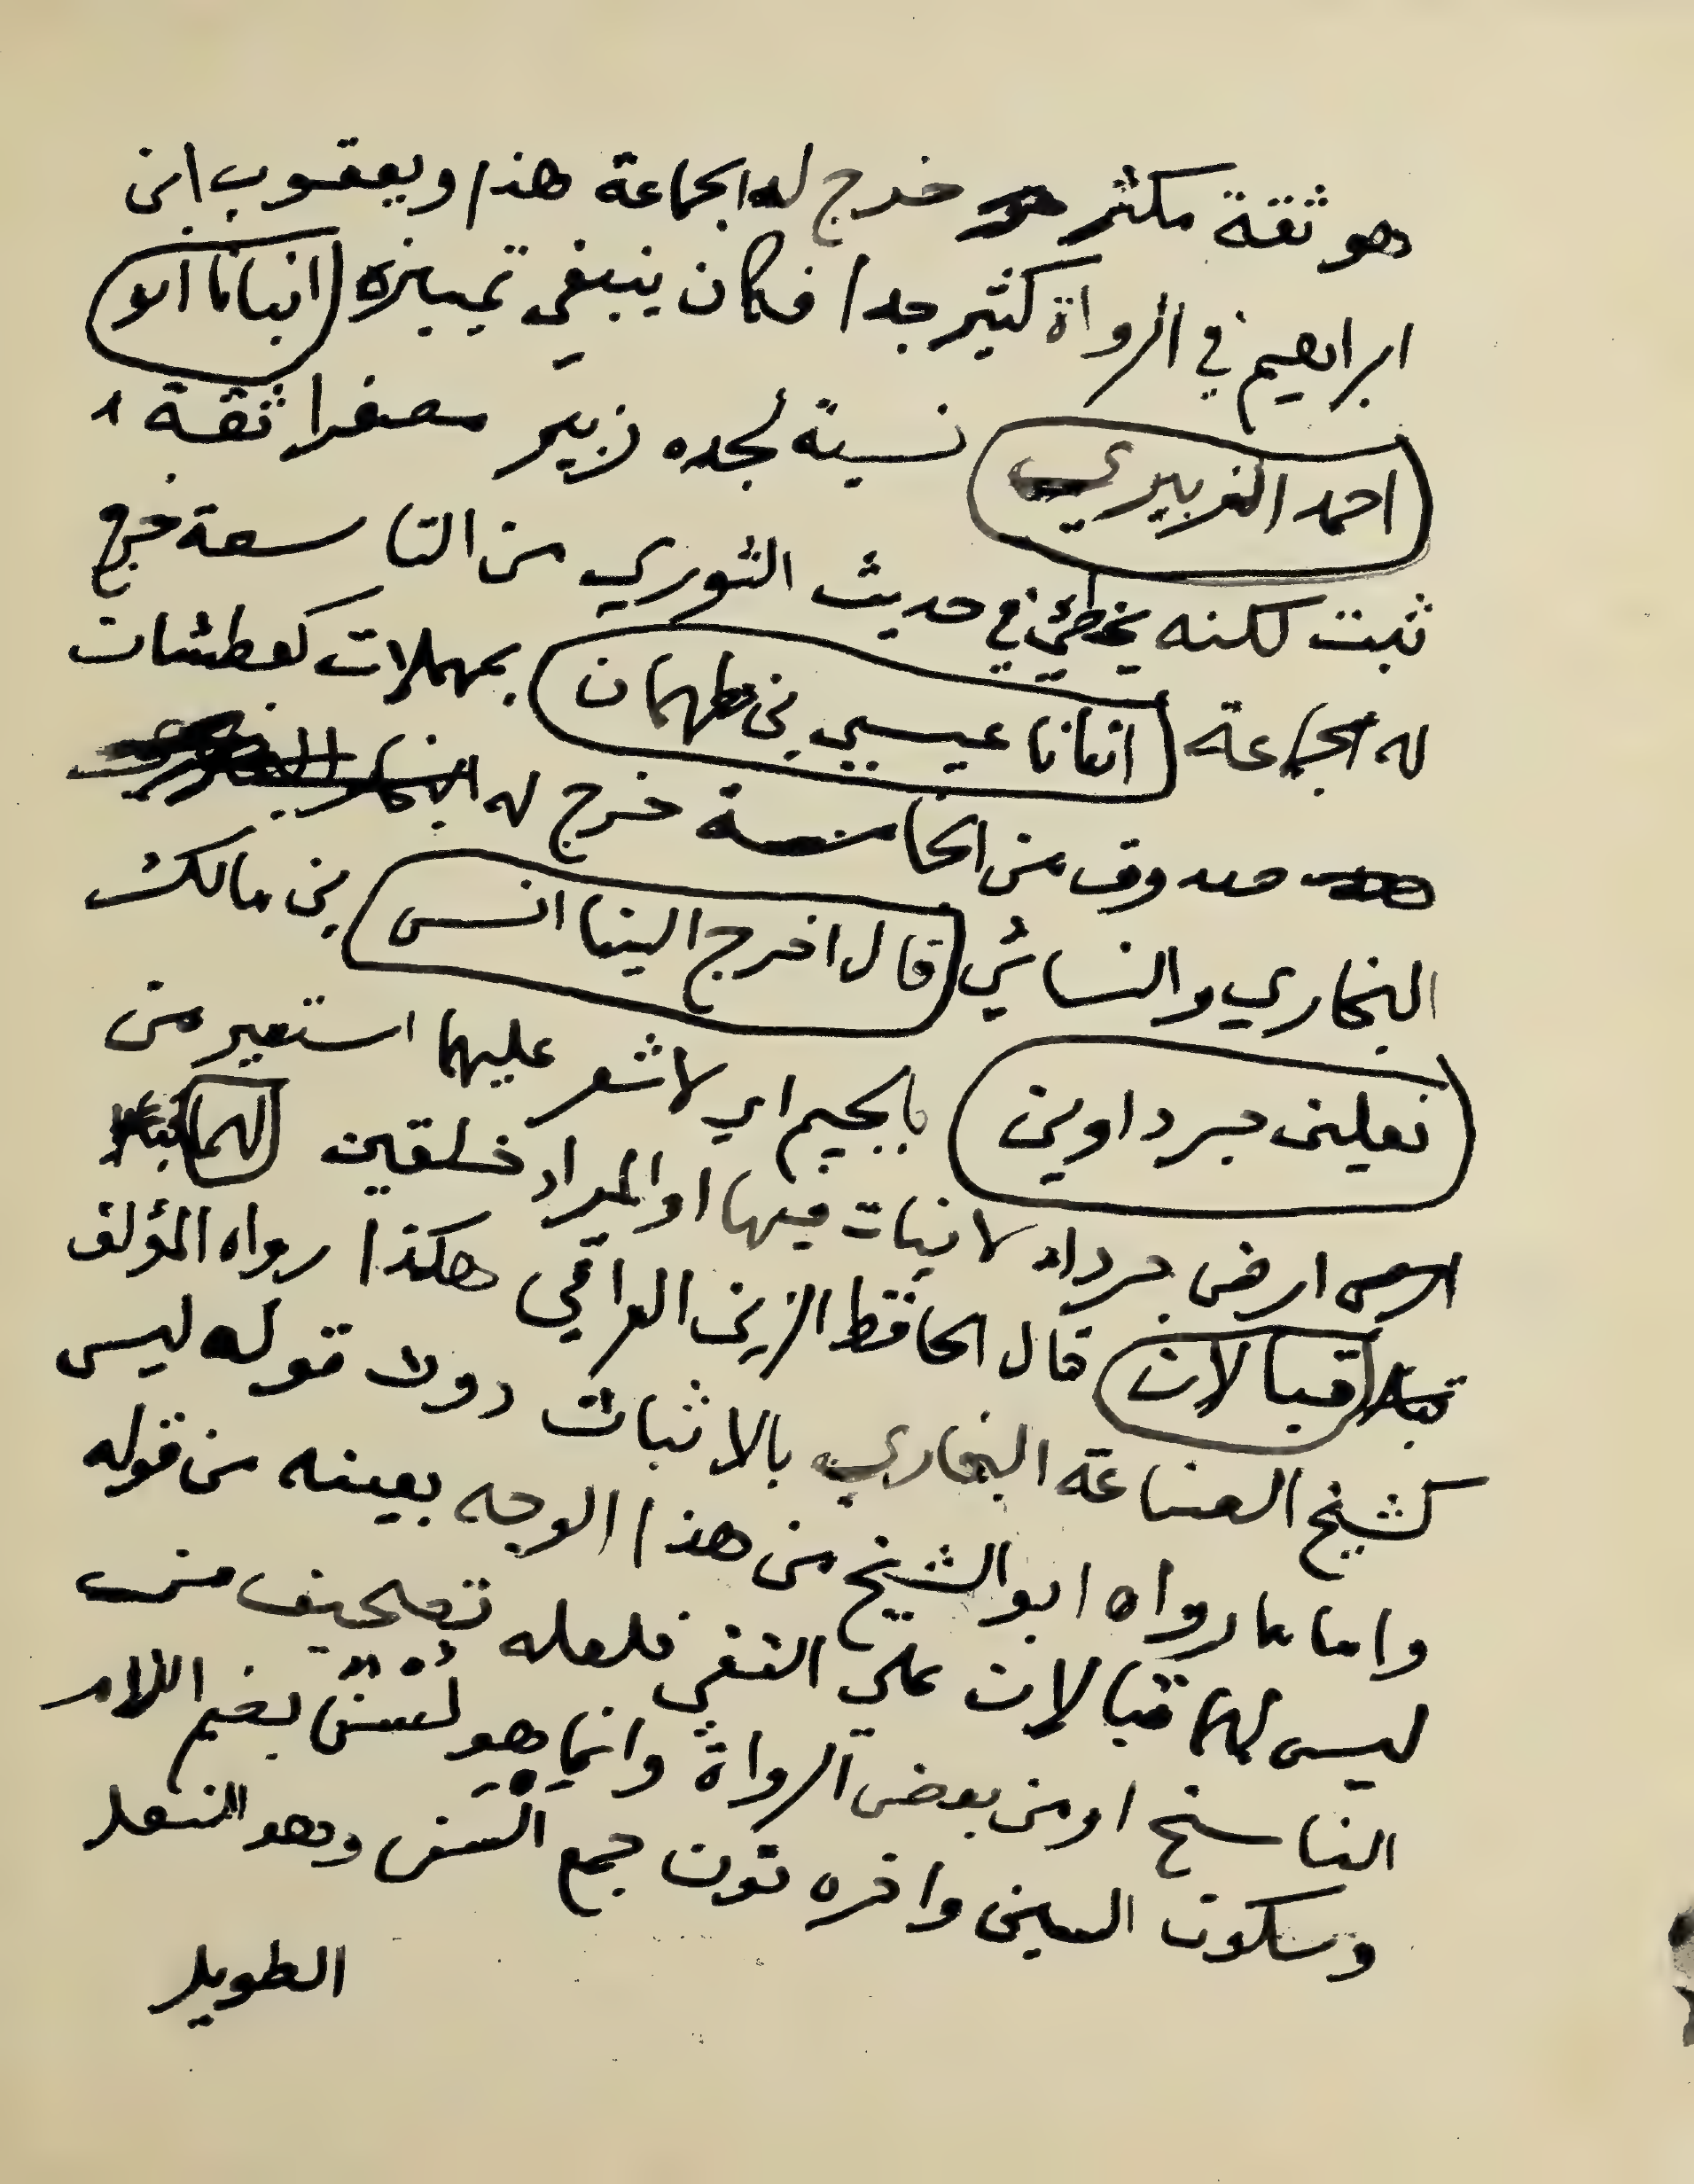 هو ثقة مكثر خرج له الجماعة هذا ويعقوب ابن
ابراهيم في الرواة كثير جدا فكان ينبغي تمييزه انبانا ابو
احمد الزبيري نسبة لجده زبير مصغرا ثقة
ثبت لكنه يخطئ في حديث الثوري من التاسعة خرج
له الجماعة انبانا عيسى بن طهمان بمهملات كعطشان
صدوق من الخامسة خرج له
البخاري والنسائي قال اخرج الينا انس بن مالك
نعلين جرداوين بالجيم اي لا شعر عليهما استعير من
ارض جرداء لا نبات فيها او المراد خلقين لهما
قبالان قال الحافظ الزين العراقي هكذا رواه المؤلف
كشيخ الصناعة البخاري بالاثبات دون قوله ليس
واما ما رواه ابو الشيخ من هذا الوجه بعينه من قوله
ليس لهما قبالان على النفي فلعله تصحيف من
الناسخ او من بعض الرواة وانما هو لُسْن بضم اللام
وسكون السين واخره نون جمع السن وهو النعل
الطويل